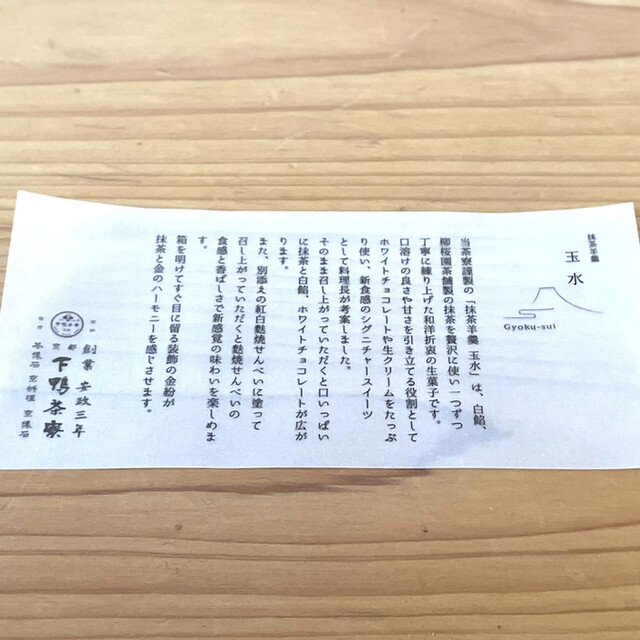 抹茶羊羹
玉水
Gyoku-sui
当茶寮謹製の「抹茶羊羹 玉水」は、白餡、
柳桜園茶舗製の抹茶を贅沢に使い一つずつ
丁寧に練り上げた和洋折衷の生菓子です。
口溶けの良さや甘さを引き立てる役割として
ホワイトチョコレートや生クリームをたっぷ
り使い、新食感のシグニチャースイーツ
として料理長が考案しました。
そのまま召し上がっていただくと口いっぱい
に抹茶と白餡、ホワイトチョコレートが広が
ります。
また、別添えの紅白麩焼せんべいに塗って
召し上がっていただくと麩焼せんべいの
食感と香ばしさで新感覚の味わいを楽しめま
す。
箱を明けてすぐ目に留る装飾の金粉が
抹茶と金のハーモニーを感じさせます。
創業 安政三年
京都
下鴨茶寮
茶懐石 京料理 京懐石